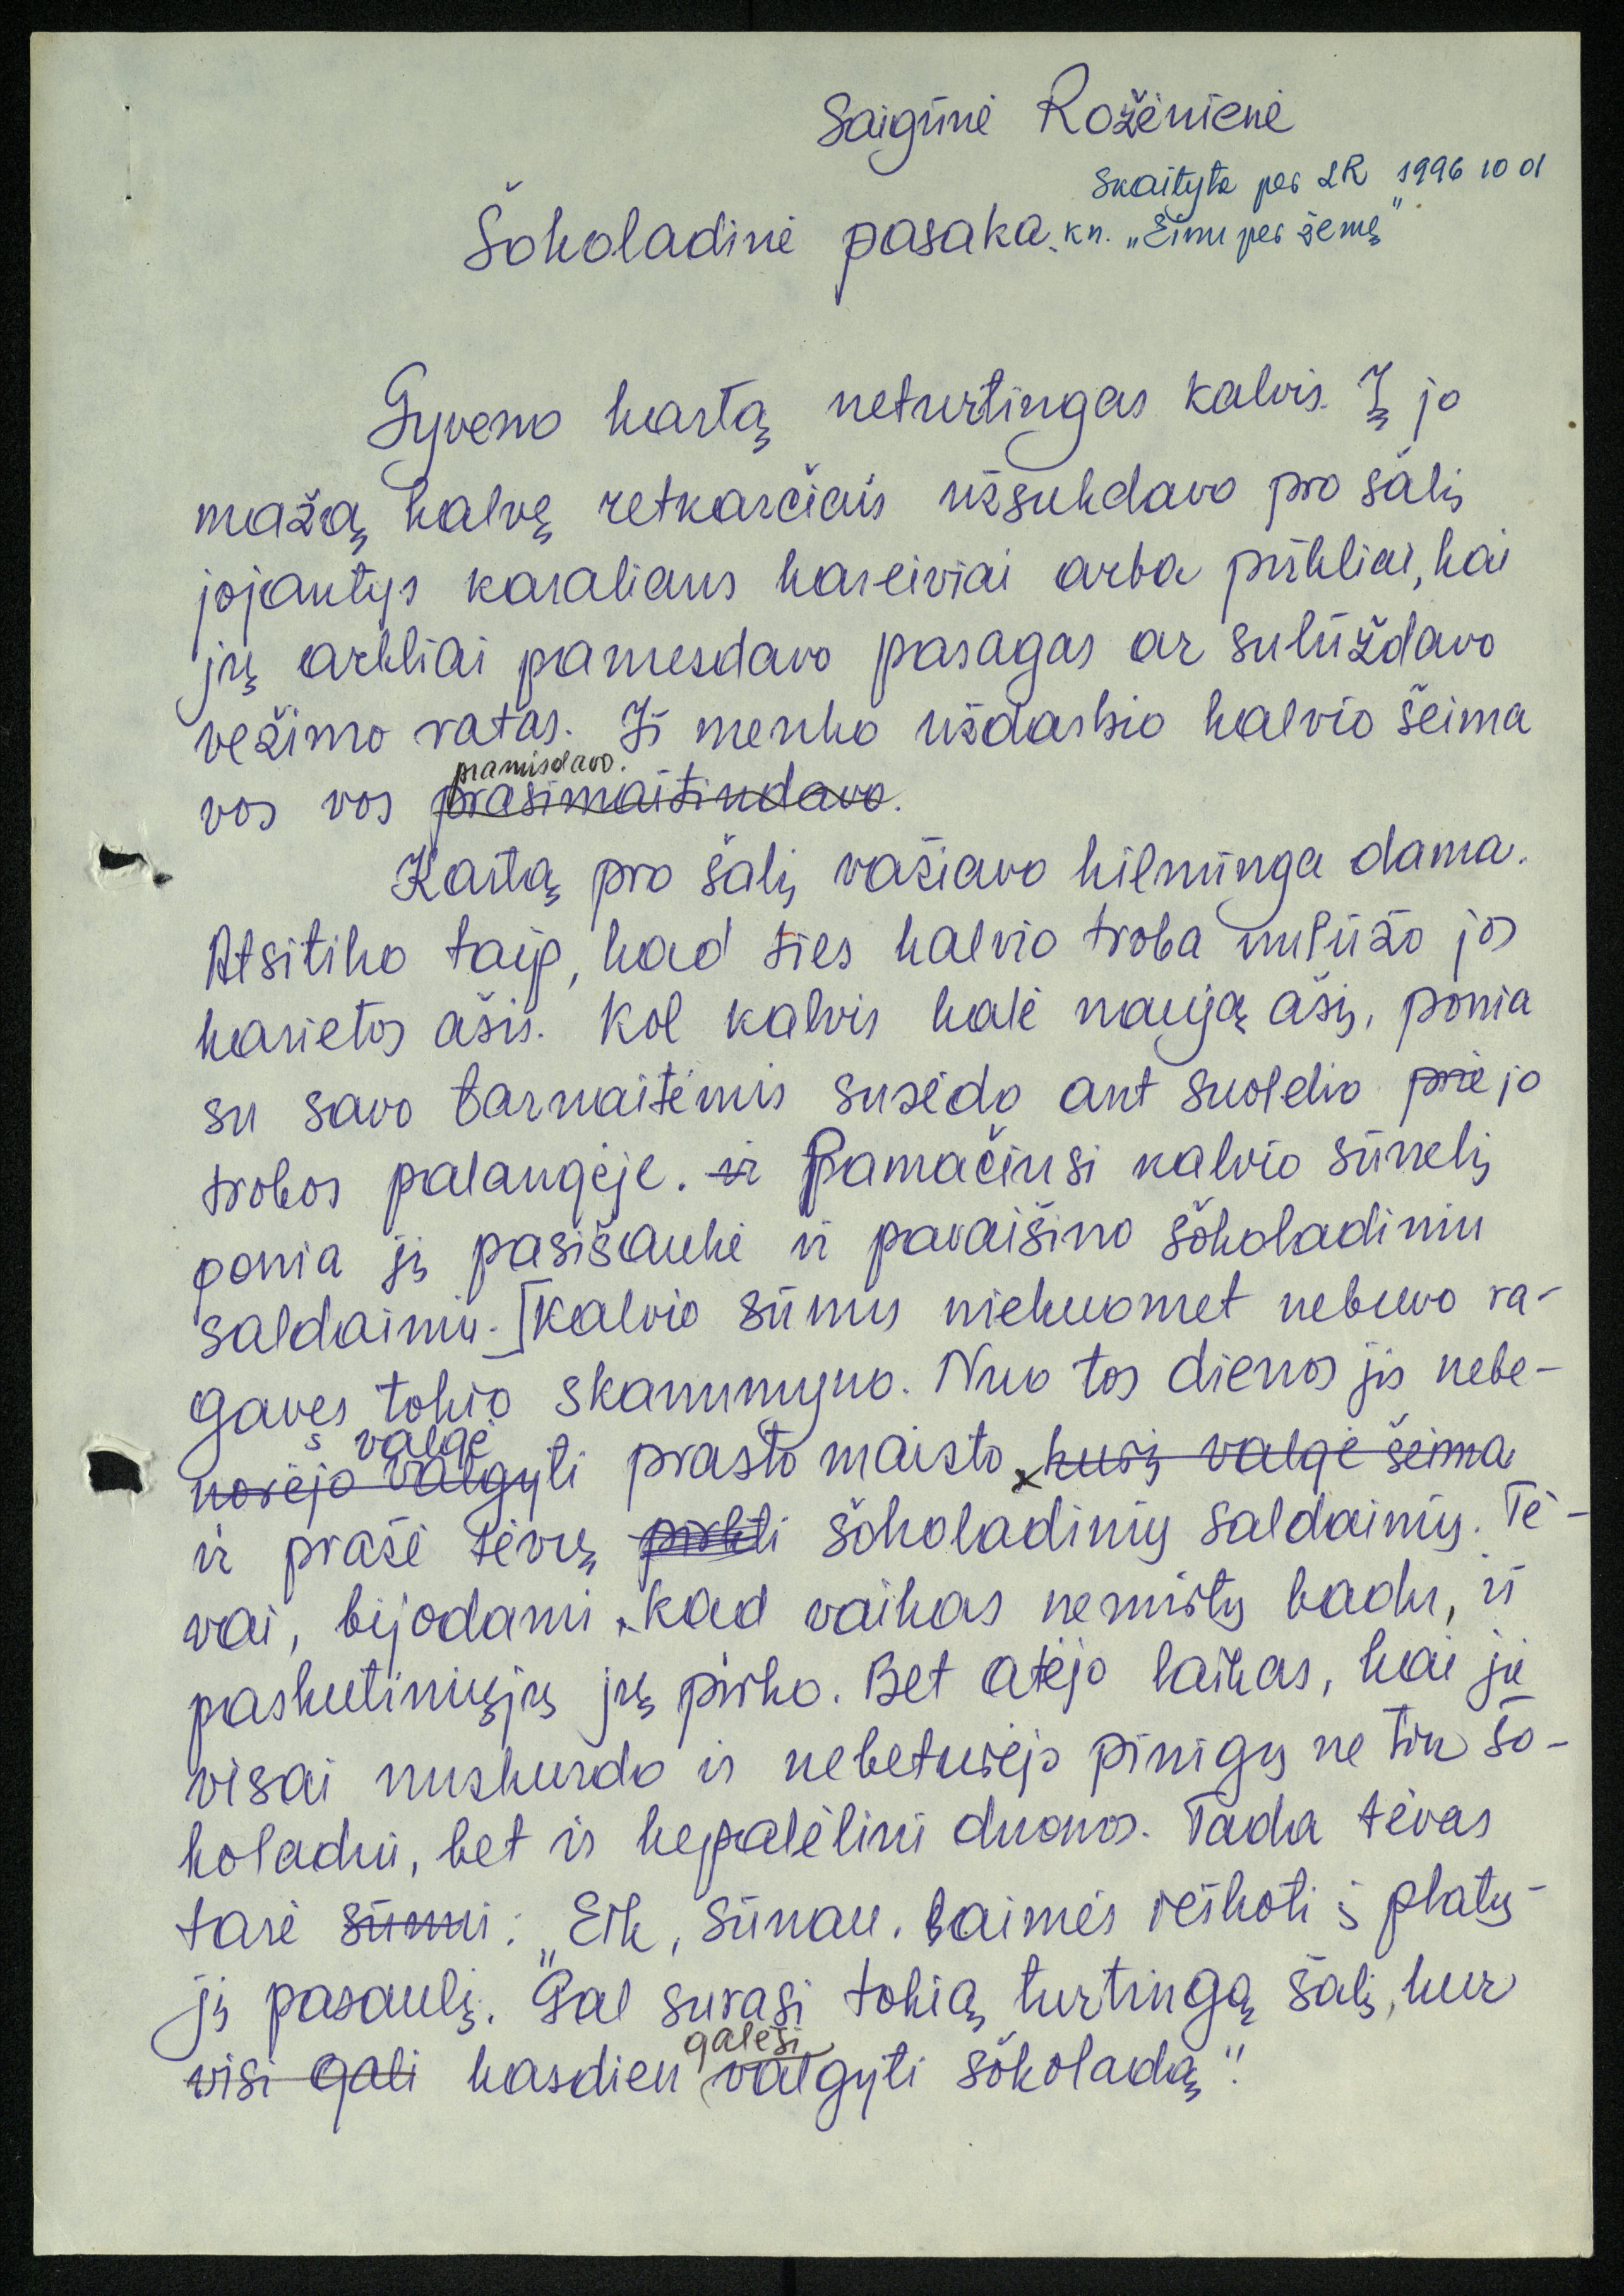 Saigūnė Roženienė
Skaityta per LR 1996 10 01
Šokoladinė pasaka. kn. „Einu per žemę"
Gyveno kartą neturtingas kalvis. Į jo
mažą kalvę retkarčiais užsukdavo pro šalį
jojantys karaliaus kareiviai arba pirkliai, kai
jų arkliai pamesdavo pasagas ar sulūždavo
vežimo ratas. Iš menko uždarbio kalvio šeima
pramisdavo.
vos vos prasimaitindavo.
Kartą pro šalį važiavo kilminga dama.
Atsitiko taip, kad ties kalvio troba nulūžo jos
karietos ašis. Kol kalvis kalė naują ašį, ponia
su savo tarnaitėmis susėdo ant suolelio prie jo
trobos palangėje. ir Pamačiusi kalvio sūnelį
ponia jį pasišaukė ir pavaišino šokoladiniu
saldainiu. Kalvio sūnus niekuomet nebuvo ra-
gavęs tokio skanumyno. Nuo tos dienos jis nebe-
valgė
norėjo valgyti prasto maisto, kurį valgė šeima
ir prašė tėvų pirkti šokoladinių saldainių. Tė-
vai, bijodami, kad vaikas nemirtų badu, iš
paskutiniųjų jų pirko. Bet atėjo laikas, kai jie
visai nuskurdo ir nebeturėjo pinigų ne tik šo-
koladui, bet ir kepalėliui duonos. Tada tėvas
tarė sūnui: „Eik, sūnau, laimės ieškoti į platų-
jį pasaulį. Gal surasi tokią turtingą šalį, kur
galėsi
visi gali kasdien valgyti šokoladą".